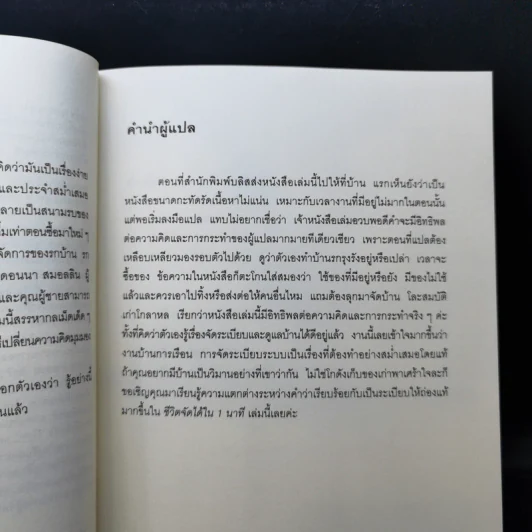 คิดว่ามันเป็นเรื่องง่าย
และประจำสม่ำเสมอ
ลายเป็นสนามรบของ
มเท่าตอนซื้อมาใหม่ ๆ
จัดการของรกบ้าน รก
ดอนนา สมอลลิน ผู้
และคุณผู้ชายสามารถ
มนี้สรรหากลเม็ดเด็ด ๆ
ที่เปลี่ยนความคิดมุมมอง
อกตัวเองว่า รู้อย่างนี้
นแล้ว
คำนำผู้แปล
ตอนที่สำนักพิมพ์บลิสส่งหนังสือเล่มนี้ไปให้ที่บ้าน แรกเห็นยังว่าเป็น
หนังสือขนาดกะทัดรัดเนื้อหาไม่แน่น เหมาะกับเวลางานที่มีอยู่ไม่มากในตอนนั้น
แต่พอเริ่มลงมือแปล แทบไม่อยากเชื่อว่า เจ้าหนังสือเล่มอวบพอดีคำจะมีอิทธิพล
ต่อความคิดและการกระทำของผู้แปลมากมายทีเดียวเชียว เพราะตอนที่แปลต้อง
เหลือบเหลียวมองรอบตัวไปด้วย ดูว่าตัวเองทำบ้านรกรุงรังอยู่หรือเปล่า เวลาจะ
ซื้อของ ข้อความในหนังสือก็ตะโกนใส่สมองว่า ใช้ของที่มีอยู่หรือยัง มีของไม่ใช้
แล้วและควรเอาไปทิ้งหรือส่งต่อให้คนอื่นไหม แถมต้องลุกมาจัดบ้าน โละสมบัติ
เก่าโกลาหล เรียกว่าหนังสือเล่มนี้มีอิทธิพลต่อความคิดและการกระทำจริง ๆ ค่ะ
ทั้งที่คิดว่าตัวเองรู้เรื่องจัดระเบียบและดูแลบ้านได้ดีอยู่แล้ว งานนี้เลยเข้าใจมากขึ้นว่า
งานบ้านการเรือน การจัดระเบียบระบบเป็นเรื่องที่ต้องทำอย่างสม่ำเสมอโดยแท้
ถ้าคุณอยากมีบ้านเป็นวิมานอย่างที่เขาว่ากัน ไม่ใช่โกดังเก็บของเก่าพาเศร้าใจละก็
ขอเชิญคุณมาเรียนรู้ความแตกต่างระหว่างคำว่าเรียบร้อยกับเป็นระเบียบให้ถ่องแท้
มากขึ้นใน ชีวิตจัดได้ใน 1 นาที เล่มนี้เลยค่ะ